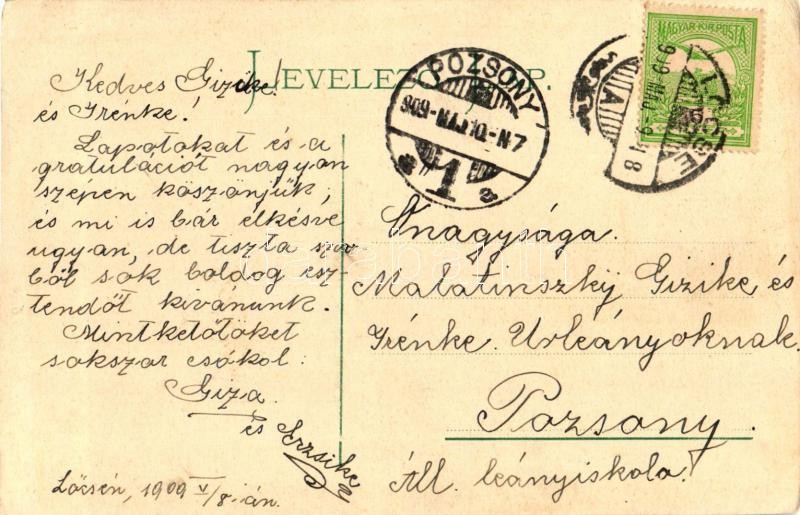 LEVELEZŐ-LAP.
MAGYAR KIR. POSTA
POZSONY
909 MÁJ 10. N 7
1
LŐCSE
A
Kedves Gizike!
és Irénke!
Lapotokat és a
gratulációt nagyon
szépen köszönjük;
és mi is bár elkésve
ugyan, de tiszta szív
ből sok boldog esz-
tendőt kivánunk.
Mintketőtöket
sokszor csókol:
Giza.
és Erzsike
Lőcsén, 1909 V/8-án.
Őnagysága.
Malatinszky Gizike és
Irénke Urleányoknak.
Pozsony.
Áll. leányiskola!